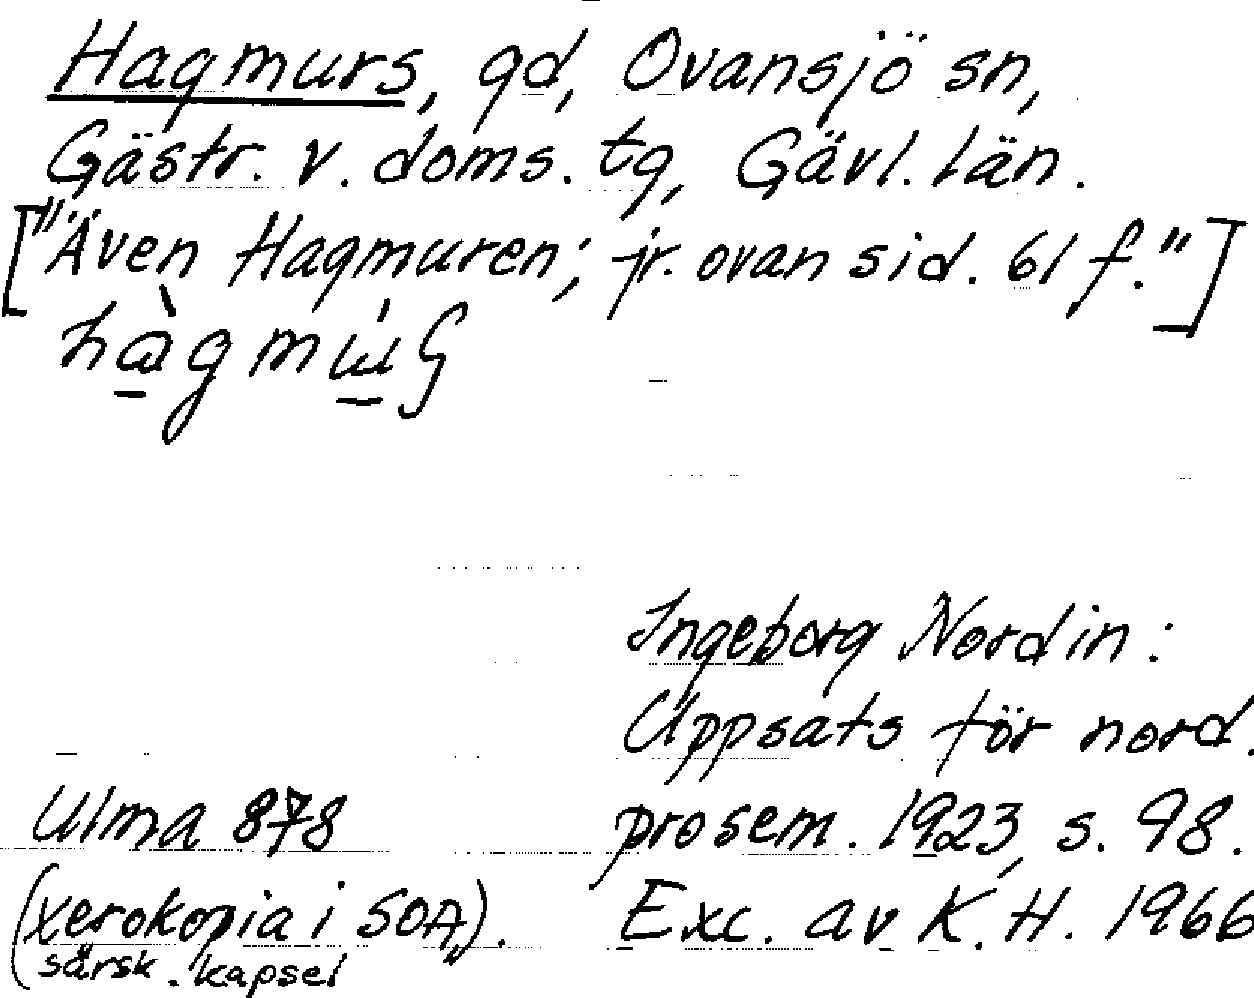 Hagmurs, gd, Ovansjö sn,
Gästr. v. doms. tg, Gävl. län.
["Även Hagmuren; jr. ovan sid. 61 f."]
Ingeborg Nordin:
Uppsats för nord.
prosem. 1923, s. 98.
Exc. av K. H. 1966
Ulma 878
(xerokopia i SOA).
särsk. kapsel